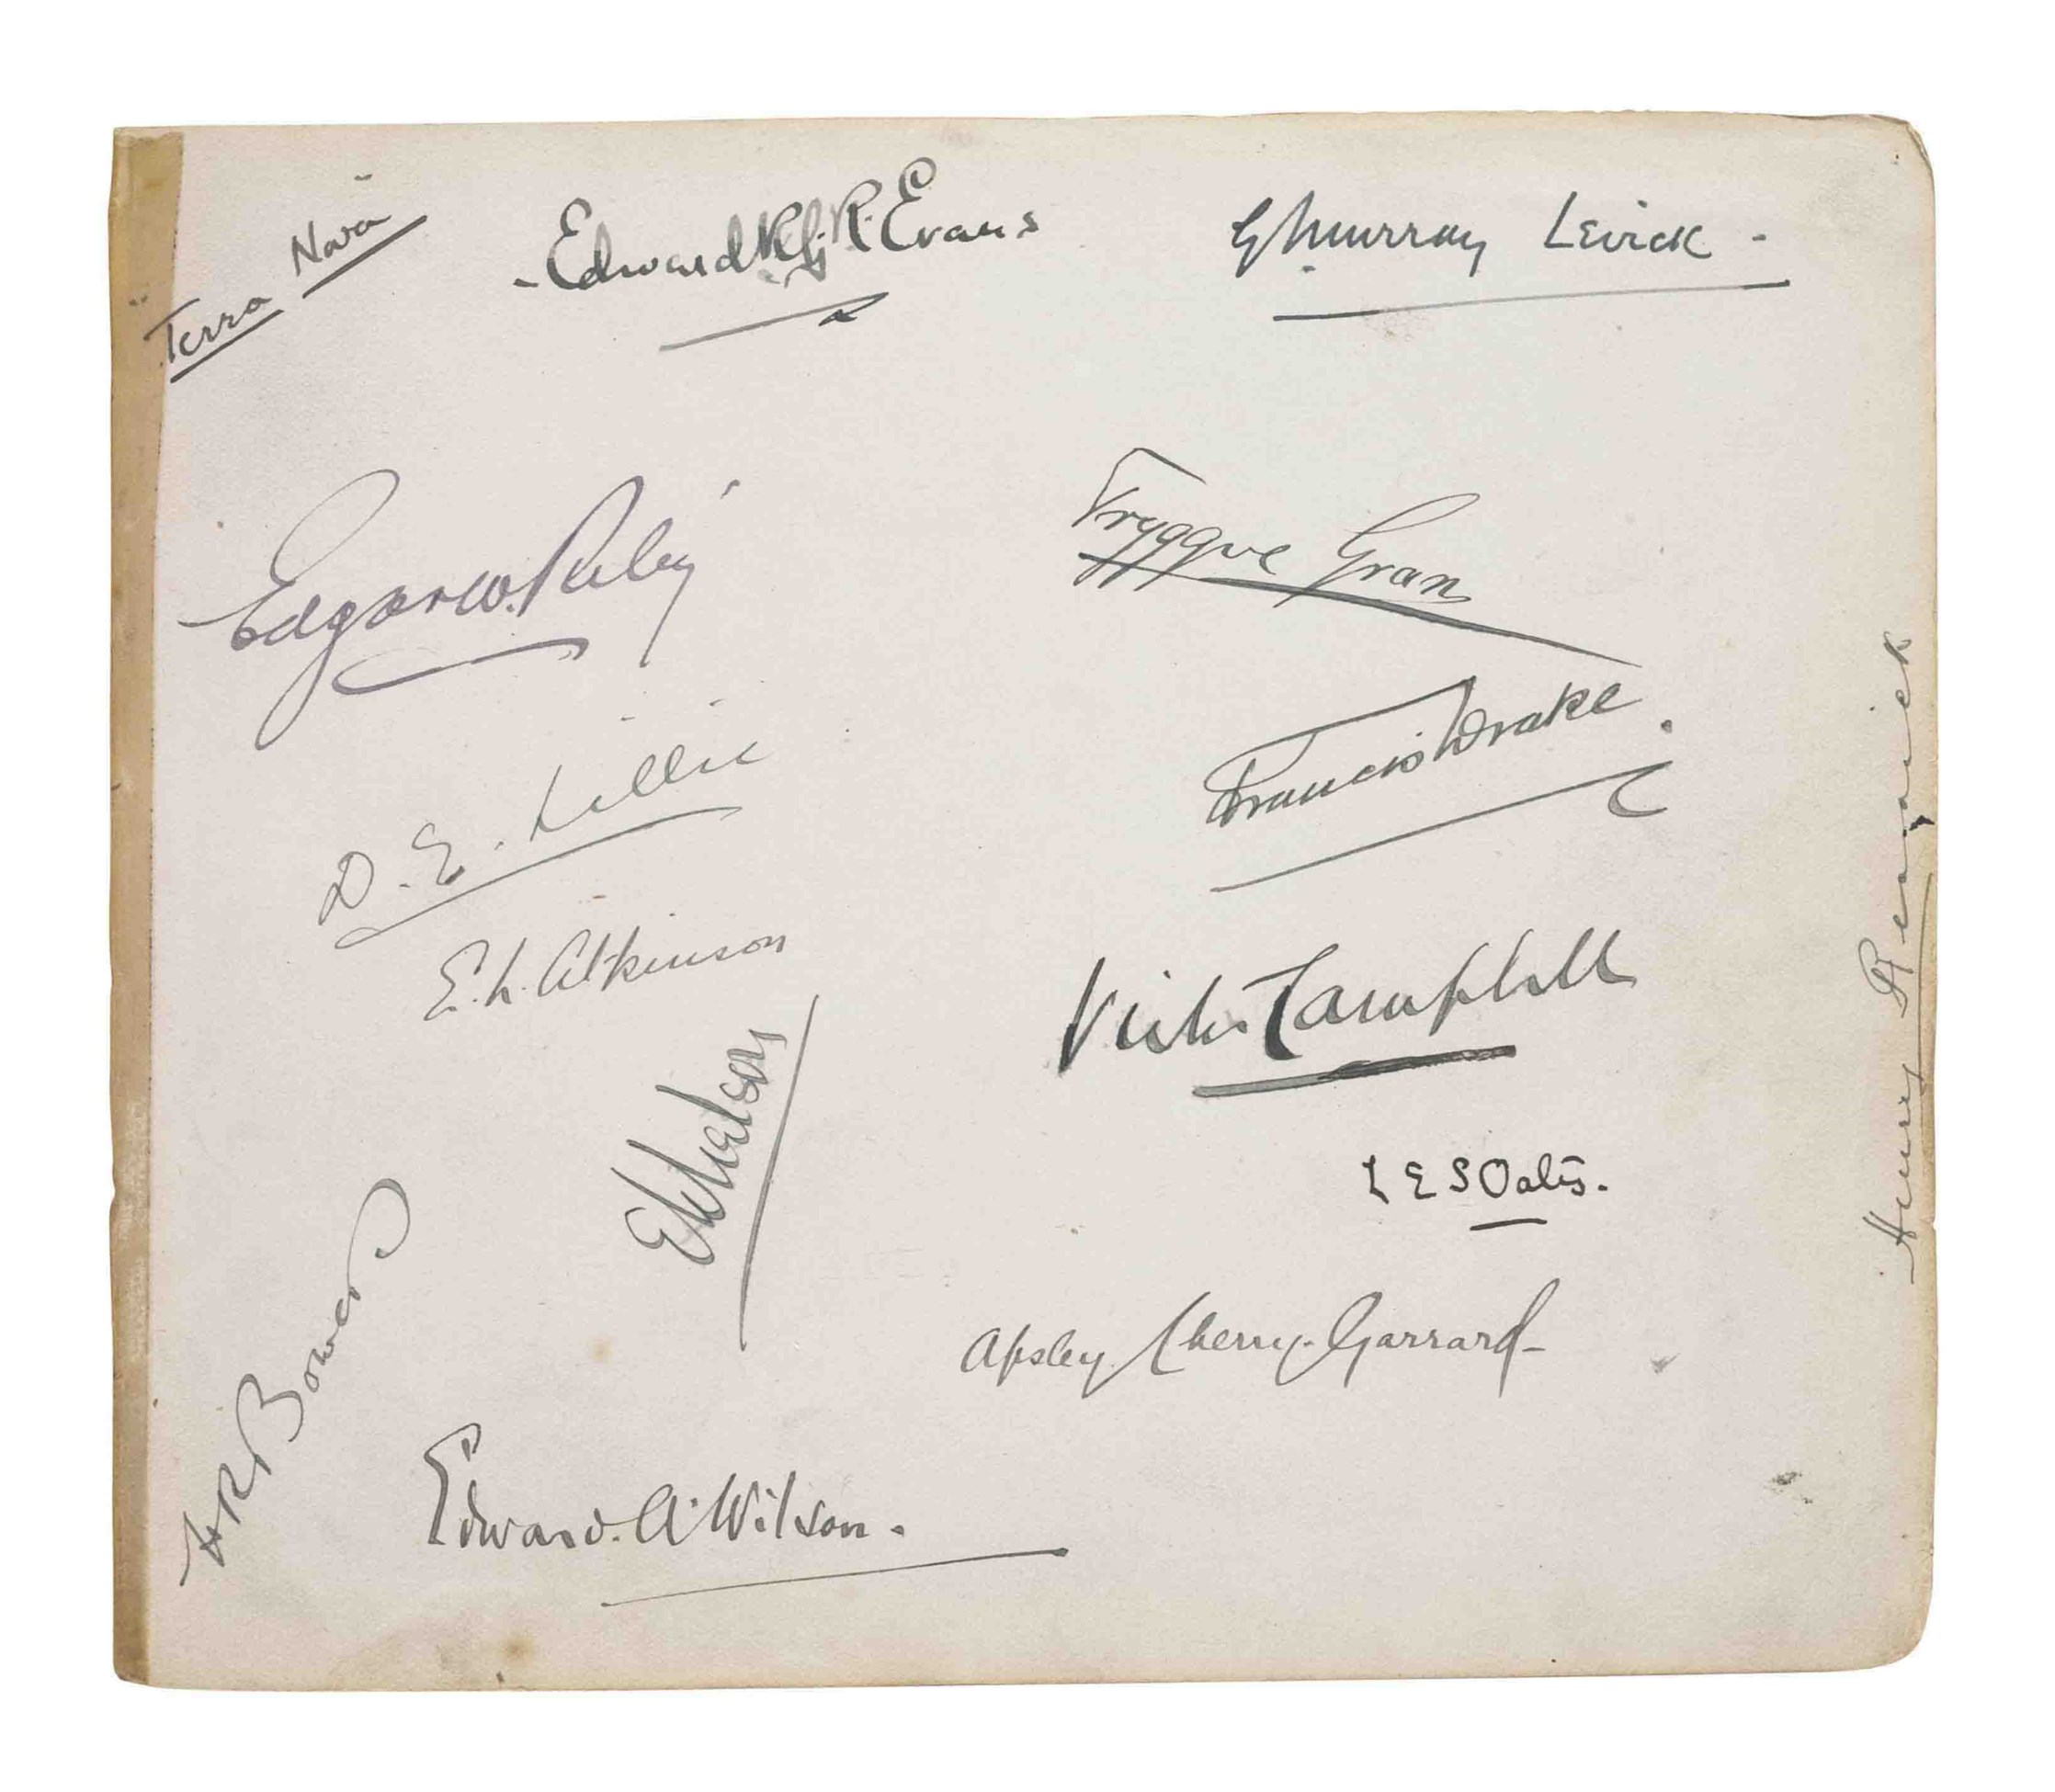 Terra Nova
Edward R G R Evans
G Murray Levick
Edgar W. Riley
Tryggve Gran
D. E. Lillie
Francis Drake.
E. L. Atkinson
Victor Campbell
E W Nelson
L E S Oates.
Henry Rennick
H R Bowers
Apsley Cherry-Garrard
Edward. A. Wilson.